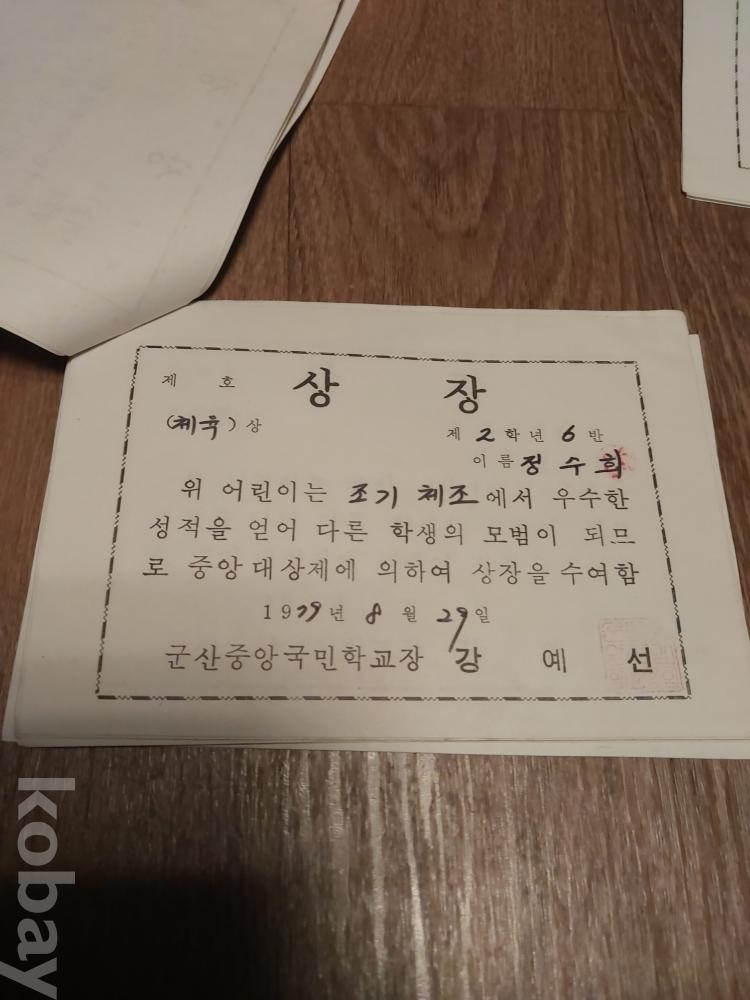 제 호 상 장
(체육) 상
제 2 학년 6 반
이름 정 수 희
위 어린이는 조기 체조에서 우수한
성적을 얻어 다른 학생의 모범이 되므
로 중앙대상제에 의하여 상장을 수여함
1979년 8 월 29일
군산중앙국민학교장 강 예 선
kobay